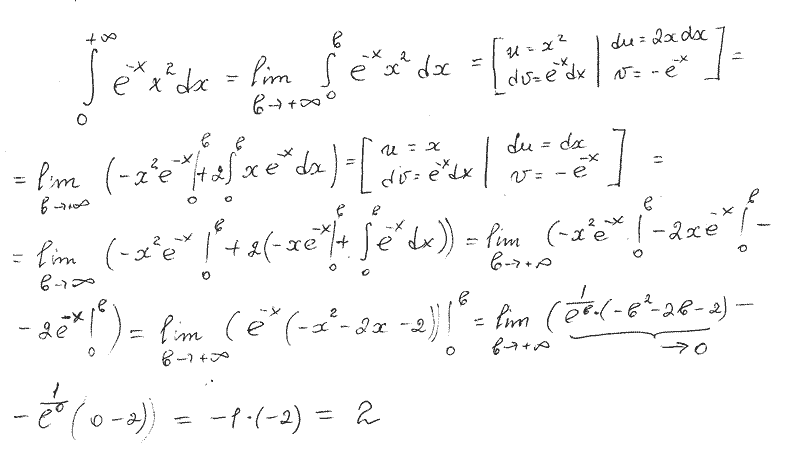 ∫₀^{+∞} e^{-x} x² dx = lim_{b→+∞} ∫₀^b e^{-x} x² dx = [u = x² | du = 2x dx; dv = e^{-x} dx | v = -e^{-x}] =
= lim_{b→+∞} (-x² e^{-x} |₀^b + 2∫₀^b x e^{-x} dx) = [u = x | du = dx; dv = e^{-x} dx | v = -e^{-x}] =
= lim_{b→∞} (-x² e^{-x} |₀^b + 2(-x e^{-x} |₀^b + ∫₀^b e^{-x} dx)) = lim_{b→+∞} (-x² e^{-x} |₀^b - 2x e^{-x} |₀^b -
- 2e^{-x} |₀^b) = lim_{b→+∞} (e^{-x} (-x² - 2x - 2)) |₀^b = lim_{b→+∞} (1/e^b · (-b² - 2b - 2) -
→ 0
- 1/e⁰ (0 - 2)) = -1 · (-2) = 2